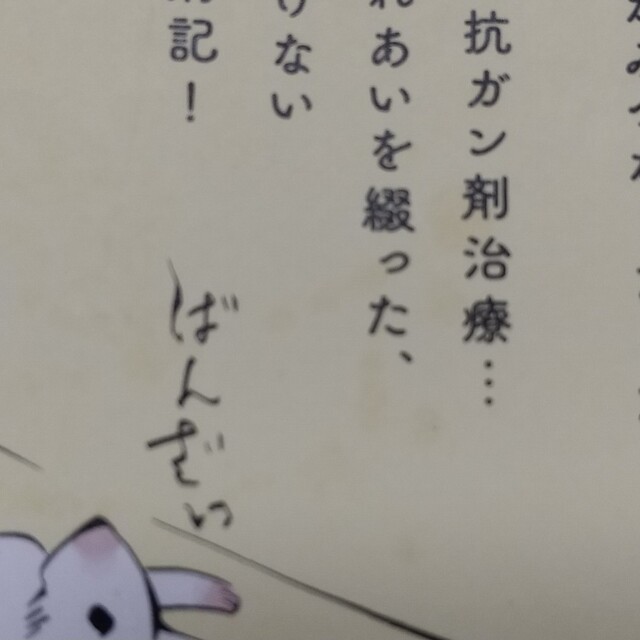 抗ガン剤治療…
れあいを綴った、
けない
記！
ばんざい